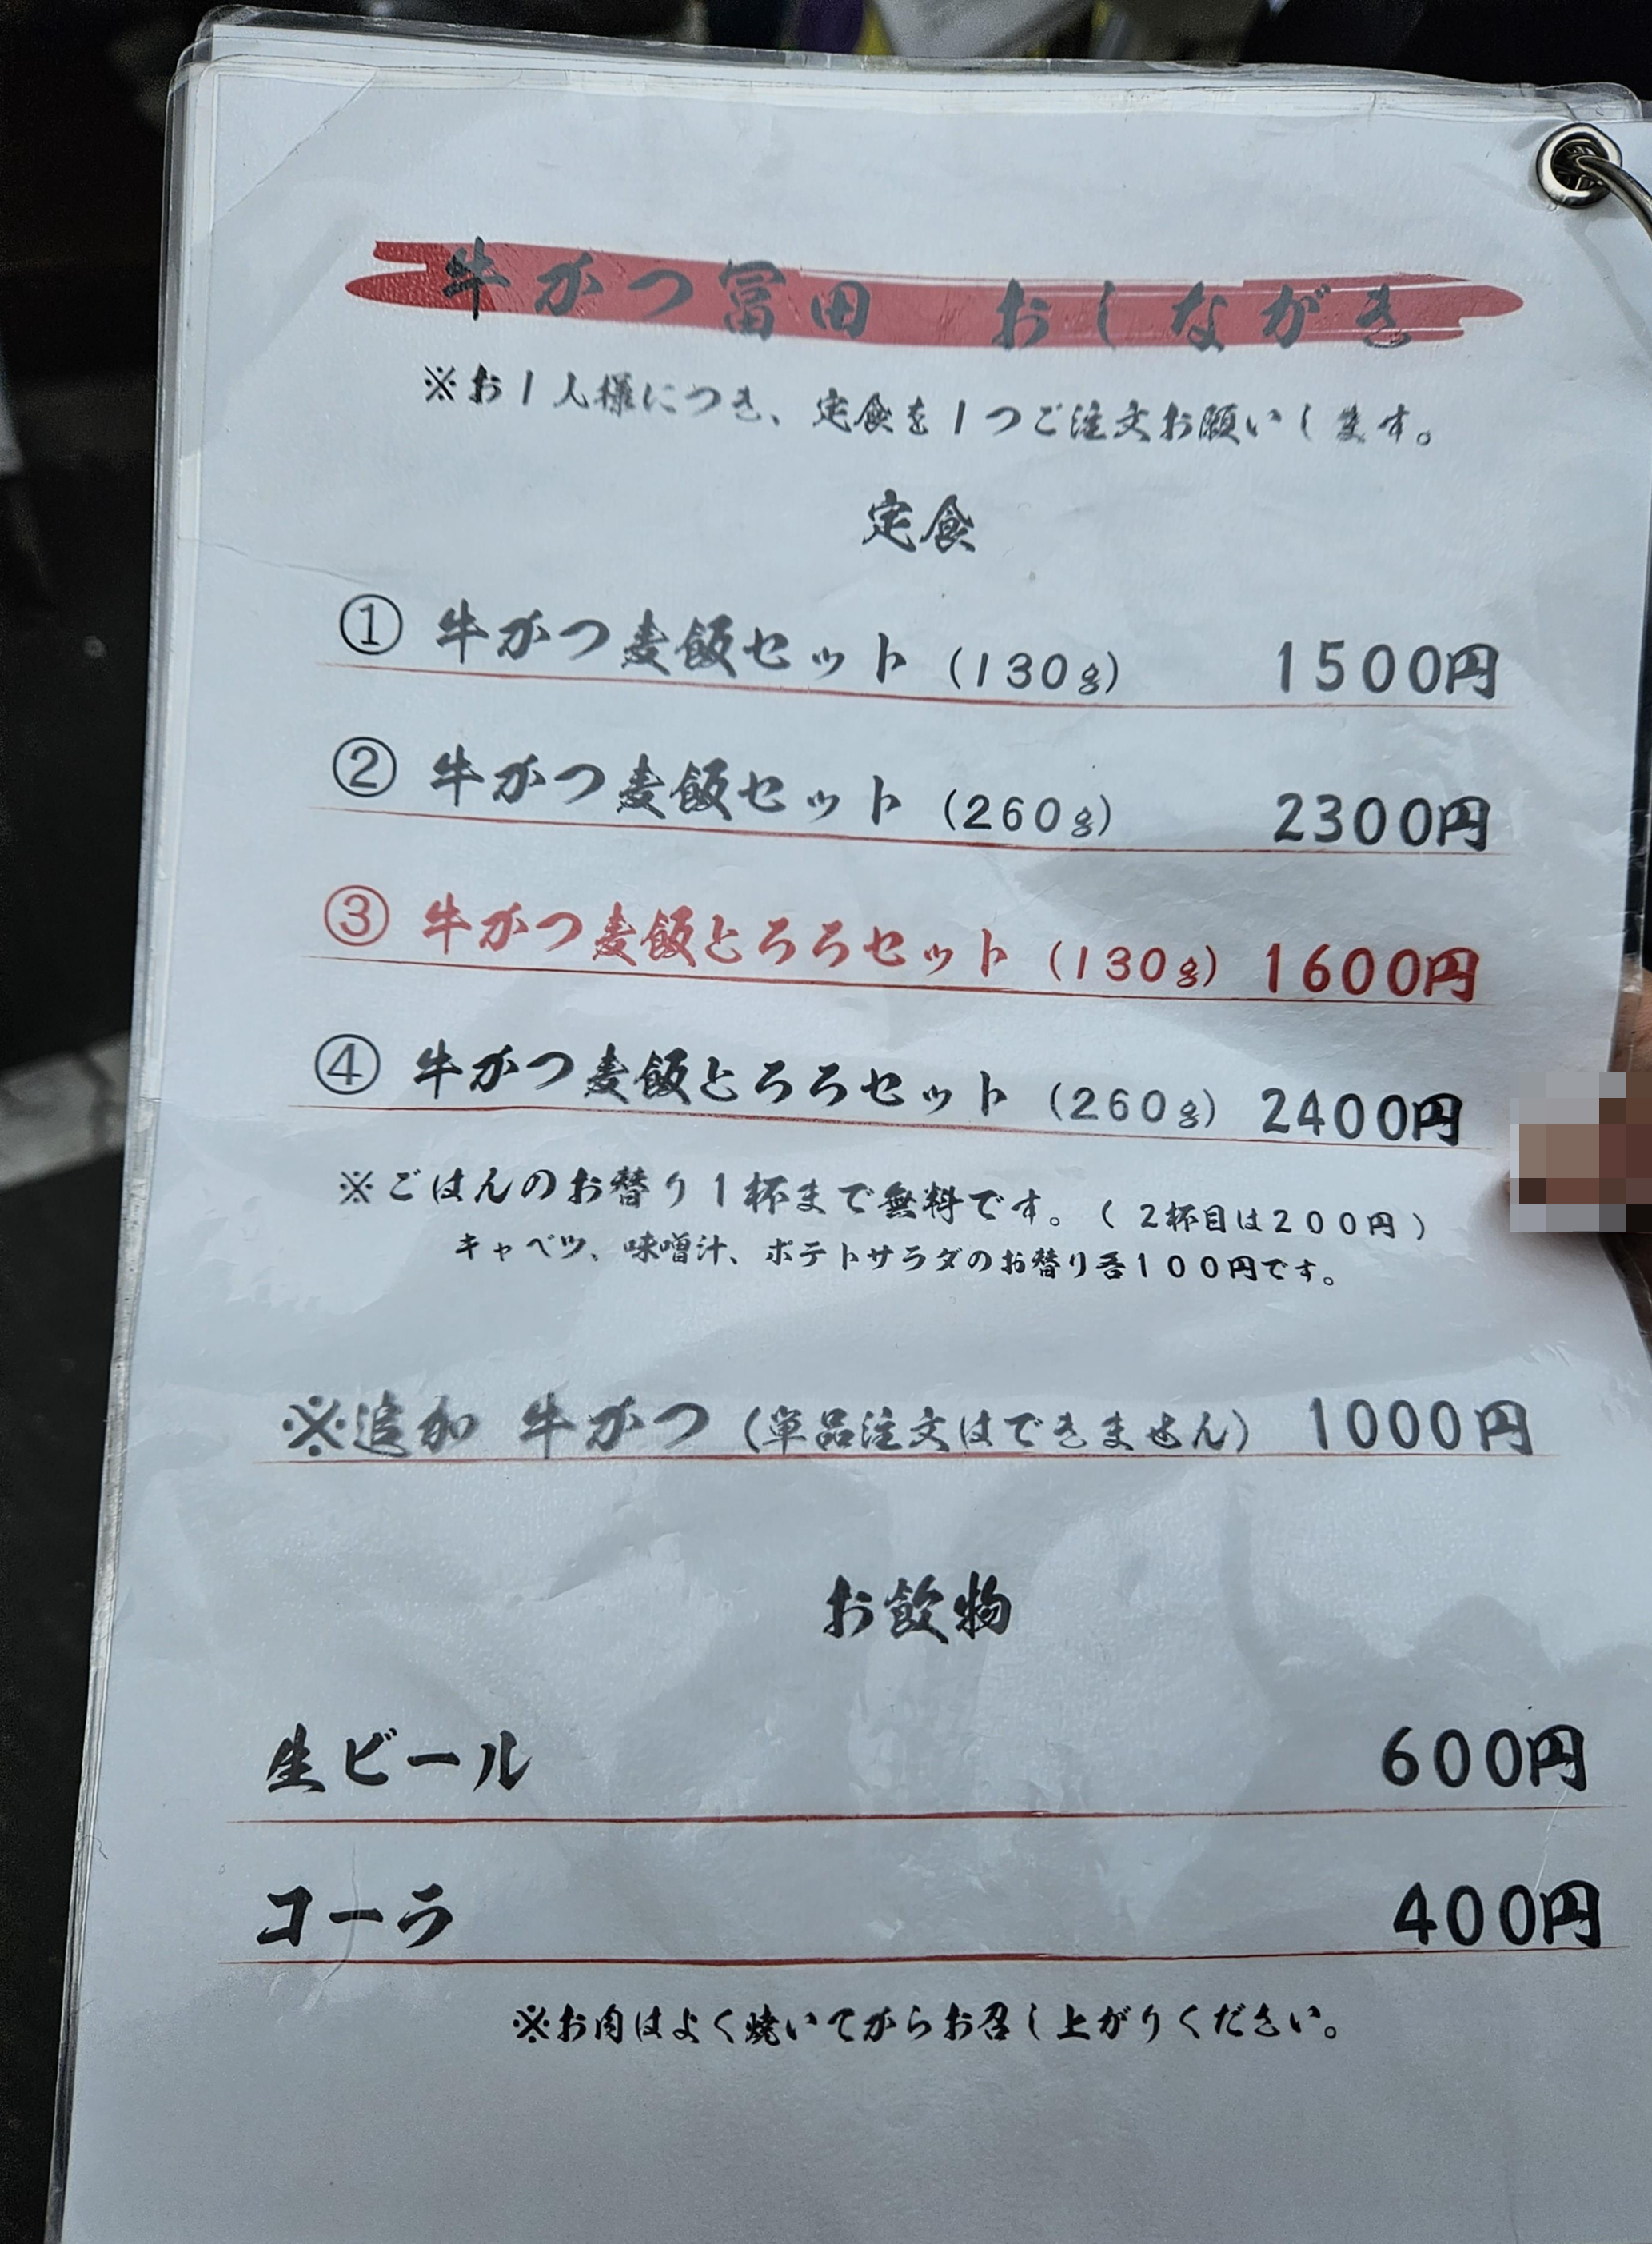 牛かつ冨田 おしながき
※お1人様につき、定食を1つご注文お願いします。
定食
① 牛かつ麦飯セット (130g) 1500円
② 牛かつ麦飯セット (260g) 2300円
③ 牛かつ麦飯とろろセット (130g) 1600円
④ 牛かつ麦飯とろろセット (260g) 2400円
※ごはんのお替り1杯まで無料です。(2杯目は200円)
キャベツ、味噌汁、ポテトサラダのお替り各100円です。
※追加 牛かつ (単品注文はできません) 1000円
お飲物
生ビール 600円
コーラ 400円
※お肉はよく焼いてからお召し上がりください。